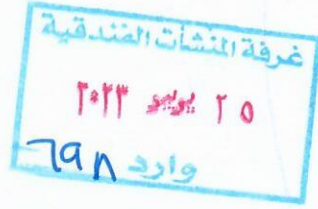 غرفة المنشآت الفندقية
٢٥ يوليو ٢٠٢٣
وارد ٦٩٨